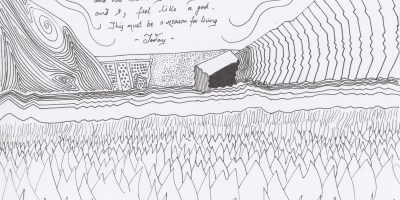 and I, feel like a god.
This must be a reason for living
~ Today ~